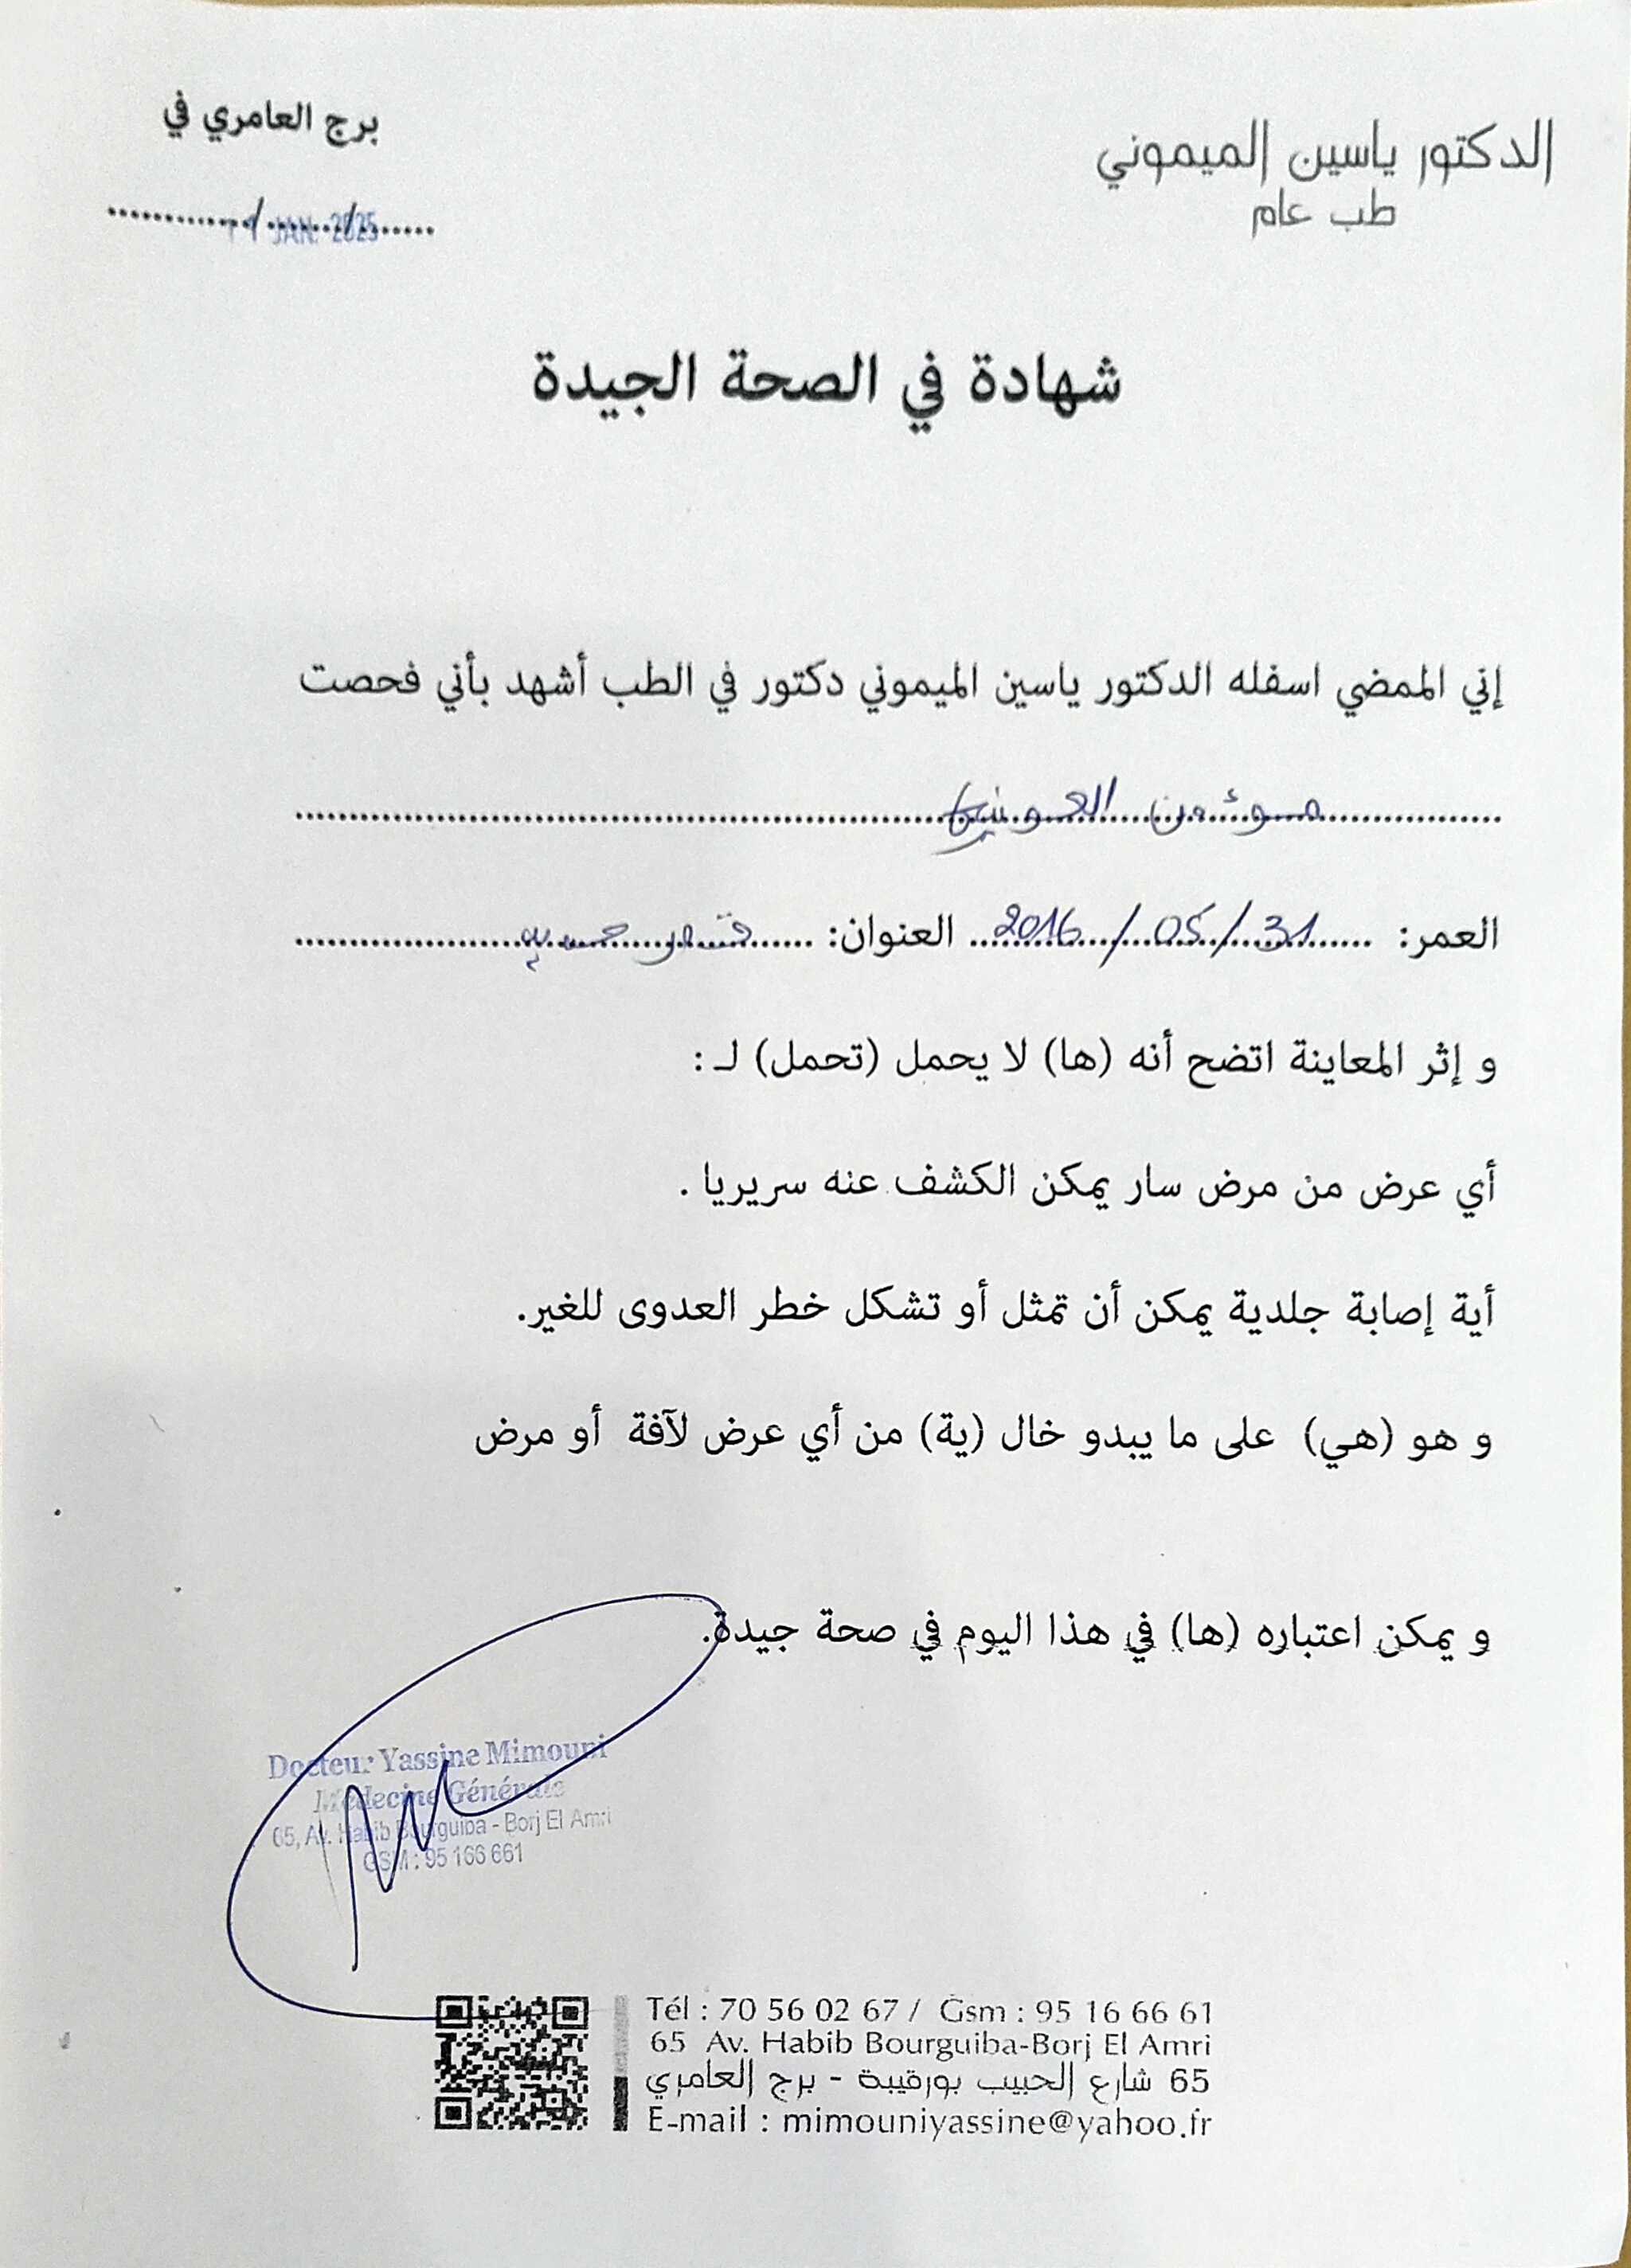 الدكتور ياسين الميموني
طب عام
برج العامري في
....../....../......
JAN. 2025
شهادة في الصحة الجيدة
إني الممضي اسفله الدكتور ياسين الميموني دكتور في الطب أشهد بأني فحصت
موئمن
العمر: 31/05/2016 العنوان:
و إثر المعاينة اتضح أنه (ها) لا يحمل (تحمل) لـ :
أي عرض من مرض سار يمكن الكشف عنه سريريا .
أية إصابة جلدية يمكن أن تمثل أو تشكل خطر العدوى للغير.
و هو (هي) على ما يبدو خال (ية) من أي عرض لآفة أو مرض
و يمكن اعتباره (ها) في هذا اليوم في صحة جيدة.
Docteur Yassine Mimouni
Médecine Générale
65, Av. Habib Bourguiba - Borj El Amri
GSM : 95 166 661
Tél : 70 56 02 67 / Gsm : 95 16 66 61
65 Av. Habib Bourguiba-Borj El Amri
65 شارع الحبيب بورقيبة - برج العامري
E-mail : mimouniyassine@yahoo.fr